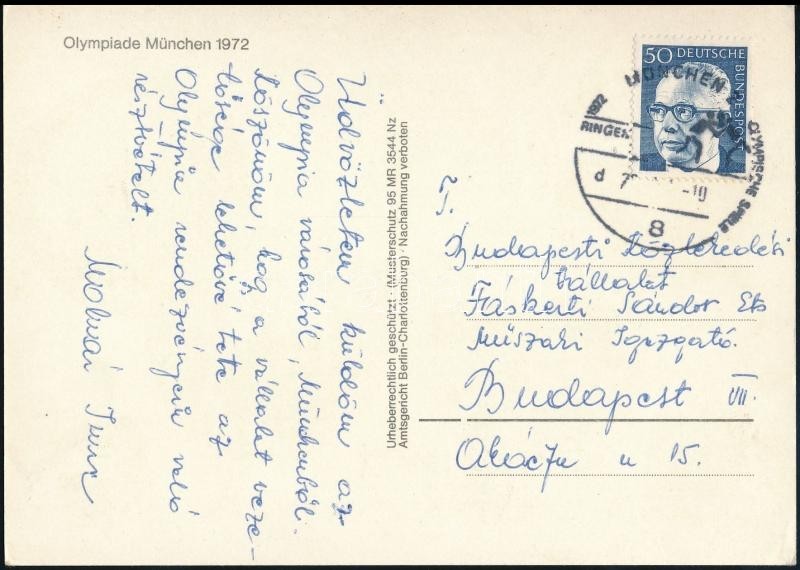 Olympiade München 1972
Üdvözletem küldöm az
Olympia városából, Münchenből.
Köszönöm, hogy a vállalat veze-
tősége lehetővé tette az
Olympia rendezvényein való
részvételt.
Molnár Imre
Urheberrechtlich geschützt · (Musterschutz 95 MR 3544 Nz
Amtsgericht Berlin-Charlottenburg) · Nachahmung verboten
50 DEUTSCHE
BUNDESPOST
MÜNCHEN
1972
RINGEN
OLYMPISCHE SPIELE
d 7 -10
8
T.
Budapesti Közlekedési
Vállalat
Fáskerti Sándor
Műszaki Igazgató.
Budapest VII.
Akácfa u 15.